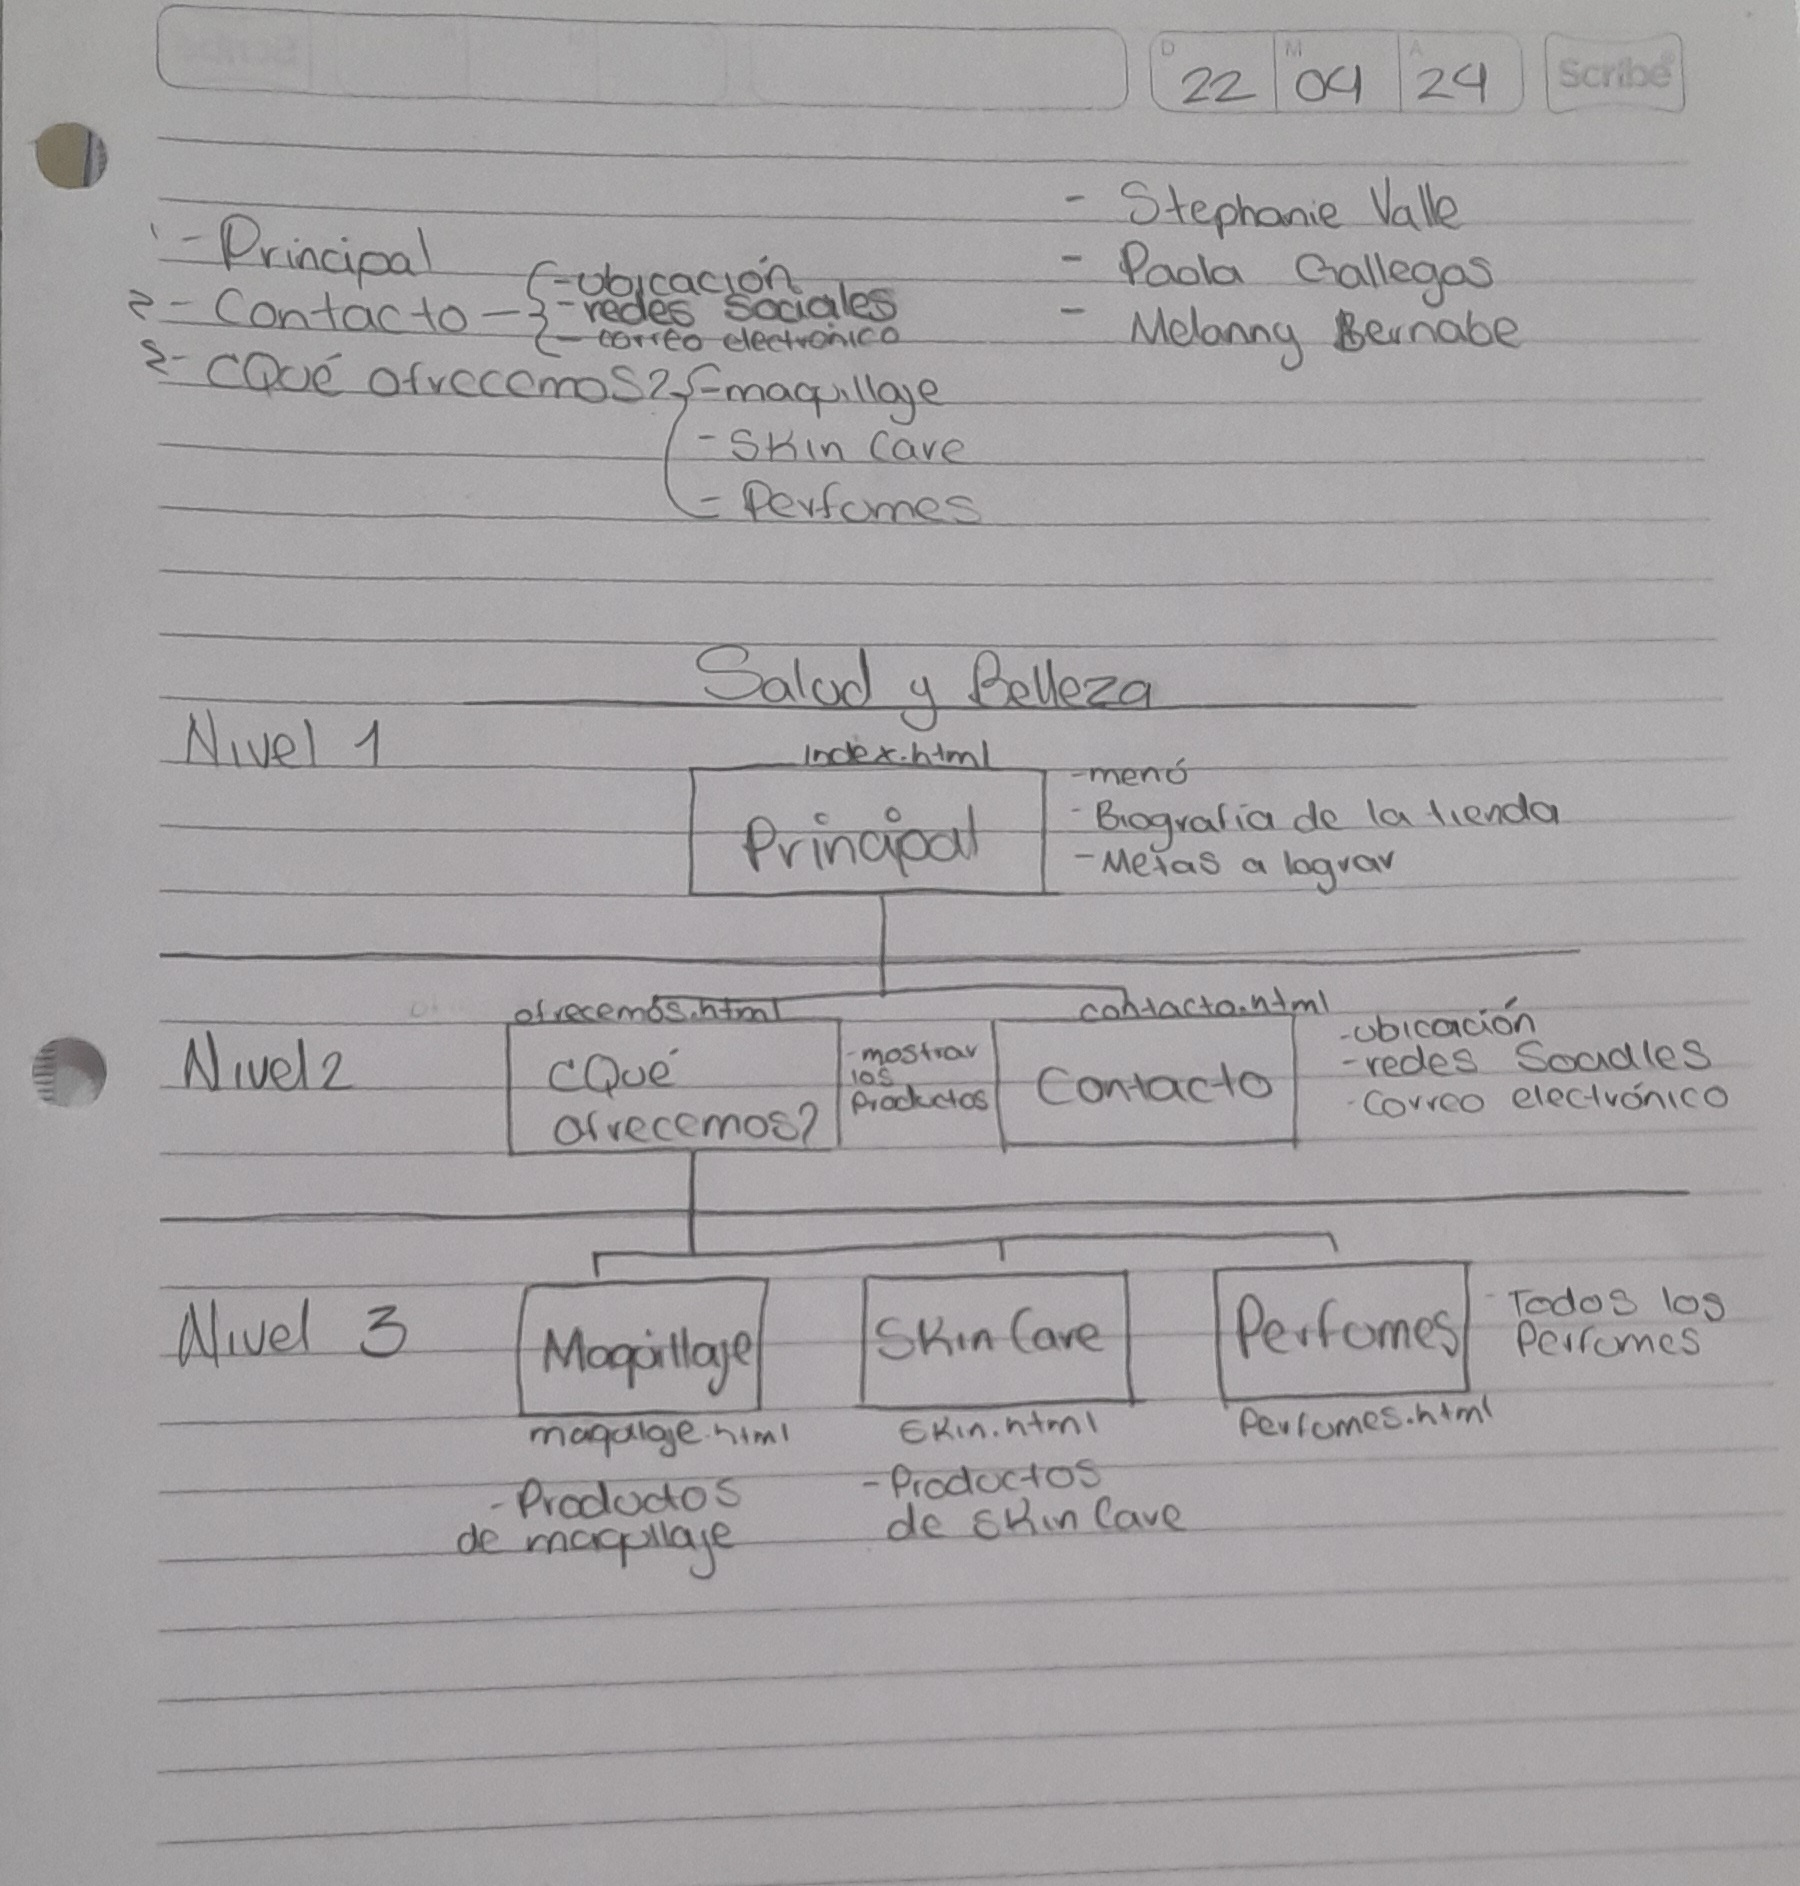 D 22 M 04 A 24 Scribe
- Stephanie Valle
- Paola Gallegos
- Melanny Bernabe
1- Principal
2- Contacto - ubicación
- redes sociales
- correo electronico
2- ¿Qué ofrecemos? - maquillaje
- Skin Care
- Perfumes
Salud y Belleza
Nivel 1
index.html
Principal
- menú
- Biografía de la tienda
- Metas a lograr
Nivel 2
ofrecemos.html
¿Qué
ofrecemos?
- mostrar
los
Productos
contacto.html
Contacto
- ubicación
- redes Sociales
- Correo electrónico
Nivel 3
Maquillaje
Skin Care
Perfumes
- Todos los
Perfumes
skin.html
Perfumes.html
- Productos
de maquillaje
- Productos
de skin Care